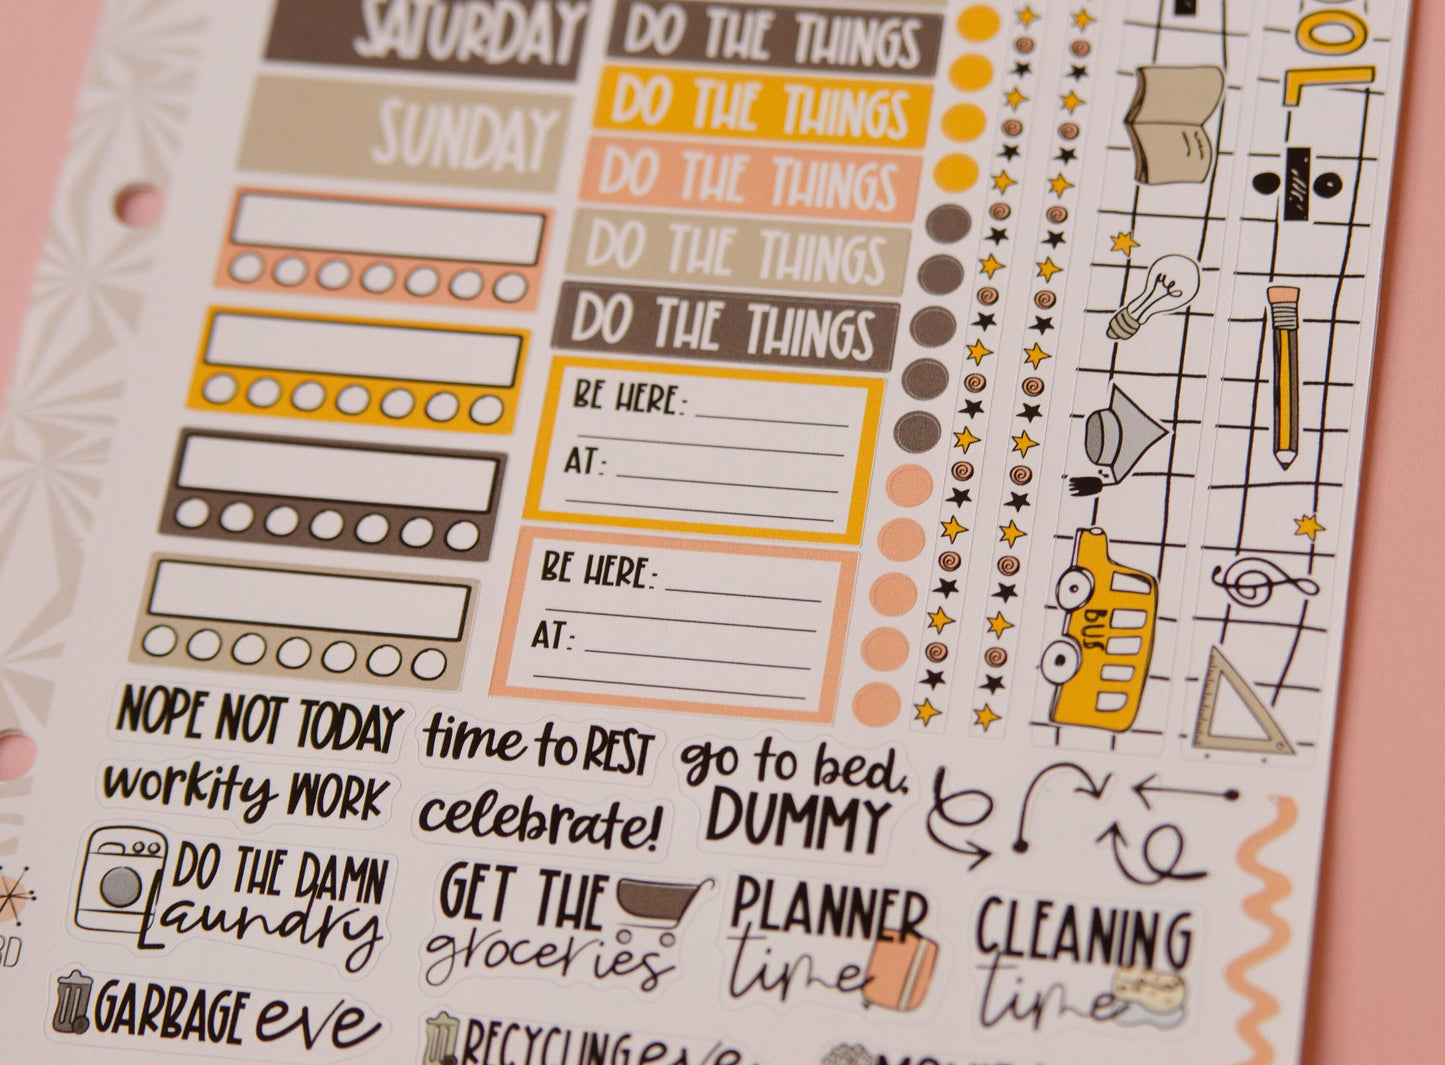 SATURDAY
SUNDAY
DO THE THINGS
DO THE THINGS
DO THE THINGS
DO THE THINGS
DO THE THINGS
BE HERE:
AT:
BE HERE:
AT:
OOL
BUS
NOPE NOT TODAY
time to REST
go to bed,
DUMMY
workity WORK
celebrate!
DO THE DAMN
Laundry
GET THE
groceries
PLANNER
time
CLEANING
time
GARBAGE eve
RECYCLING eve
RD